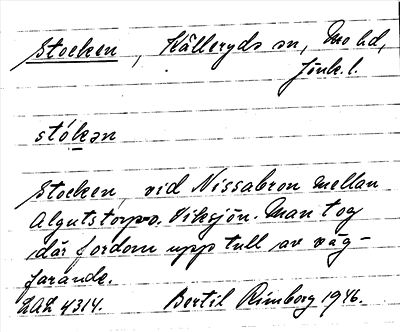 Stocken, Källeryds sn, Mo hd,
Jönk. l.
stókən
Stocken, vid Nissabron mellan
Algutstorp o. Viksjön. Man tog
där fordom upp tull av väg-
farande.
ULL 4314. Bertil Rimborg 1946.